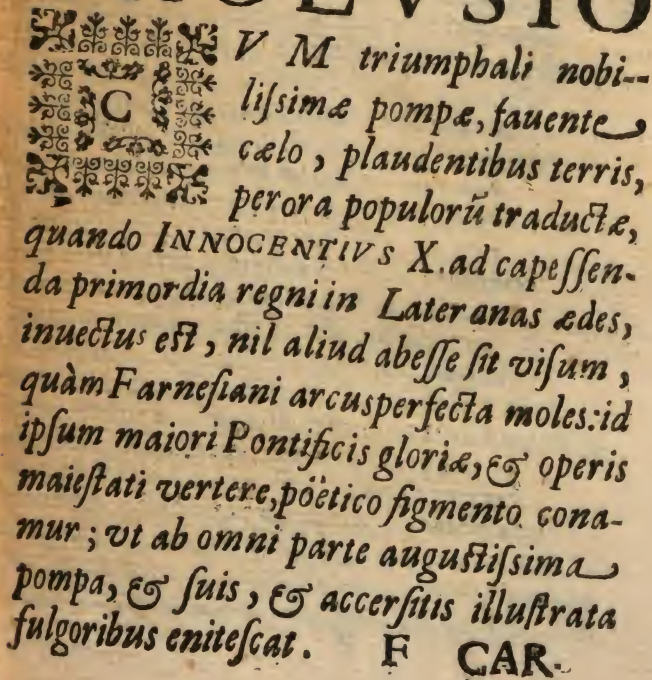 OLVSIO
CVM triumphali nobi-
lissimæ pompæ, fauente
cælo, plaudentibus terris,
perora populorũ traductæ,
quando INNOCENTIVS X. ad capessen-
da primordia regni in Lateranas ædes,
inuectus est, nil aliud abesse sit visum,
quàm Farnesiani arcusperfecta moles: id
ipsum maiori Pontificis gloriæ, & operis
maiestati vertere, pöetico figmento cona-
mur; vt ab omni parte augustissima
pompa, & suis, & accersitis illustrata
fulgoribus enitescat.
F CAR-